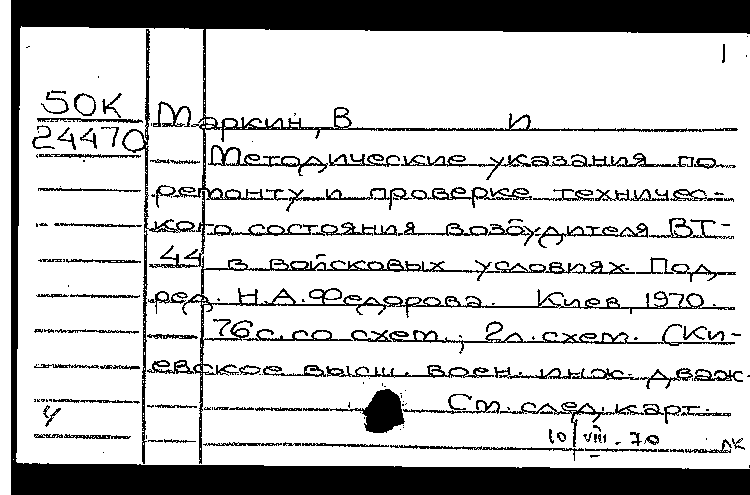 1
50К
24470
Маркин, В И
Методические указания по
ремонту и проверке техничес-
кого состояния возбудителя ВТ-
44 в войсковых условиях. Под
ред. Н.А.Федорова. Киев, 1970.
76с. со схем.; 2л. схем. (Ки-
евское высш. воен. инж. дваж-
См. след. карт.
У
10/VIII-70 ЛК